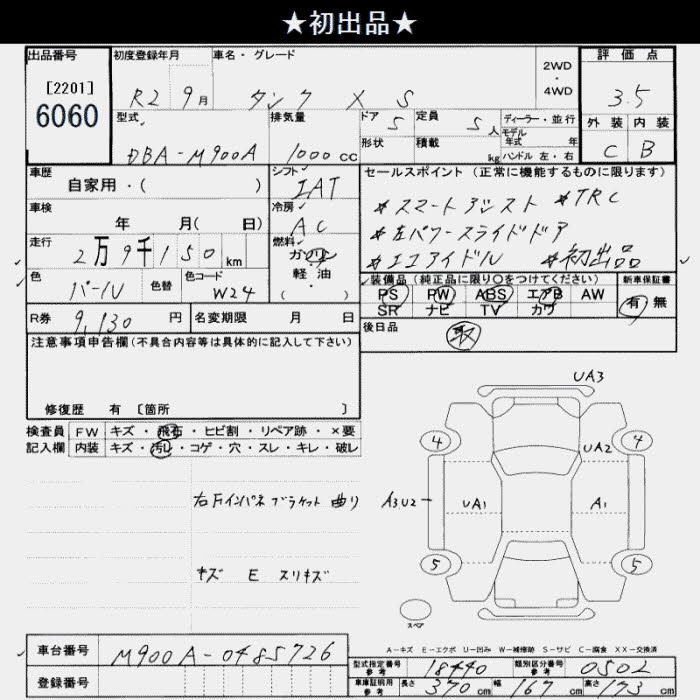 ★初出品★
出品番号 初度登録年月 車名・グレード 2WD・4WD 評価点
[2201] R2 9月 タンク X S 3.5
6060
型式 排気量 ドア 5 定員 5人 ディーラー・並行 外装 内装
モデル年式 年
DBA-M900A 1000cc 形状 積載 kg ハンドル 左・右 C B
車歴 シフト セールスポイント (正常に機能するものに限ります)
自家用・( ) IAT
*スマートアシスト *TRC
車検 冷房 AC
年 月( 日) *左パワースライドドア
走行 燃料
2万9千150km ガソリン *エコアイドル *初出品
色 色替 色コード 軽油 装備品 (純正品に限り○をつけてください) 新車保証書
パール W24 ・( ) PS PW ABS エアB AW 有 無
SR ナビ TV カワ
R券 9,130円 名変期限 月 日 後日品 取
注意事項申告欄(不具合内容等は具体的に記入して下さい)
修復歴 有 [箇所 ]
検査員 FW キズ・飛石・ヒビ割・リペア跡・×要
記入欄 内装 キズ・汚れ・コゲ・穴・スレ・キレ・破レ
UA3
4 4
UA2
右Fインパネブラケット曲り A3U2 UA1 A1
キズ E スリキズ 5 5
スペア
A-キズ E-エクボ U-凹み W-補修跡 S-サビ C-腐食 XX-交換済
車台番号 M900A-0485726 型式指定番号 参考 18440 類別区分番号 参考 0502
登録番号 車庫証明用 参考 長さ 370cm 幅 167cm 高さ 173cm